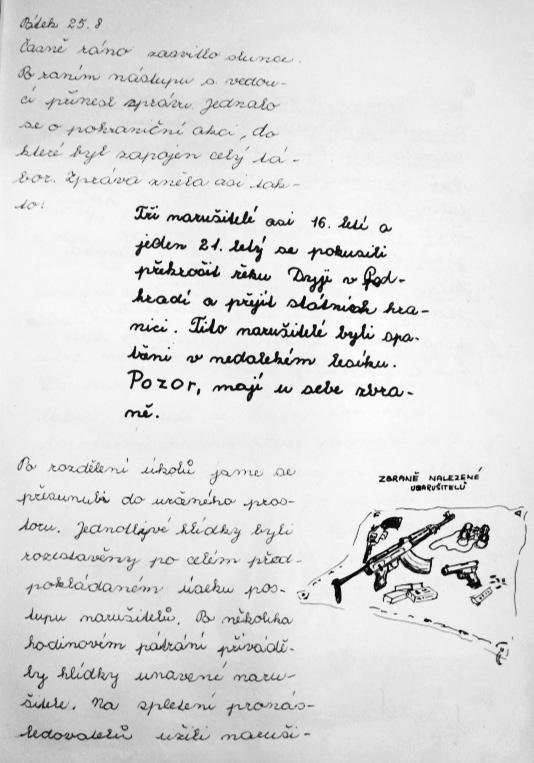 Pátek 25.8
Časně ráno zasvitlo slunce.
Po raním nástupu s. vedou-
cí přinesl zprávu. Jednalo
se o pohraniční akci, do
které byl zapojen celý tá-
bor. Zpráva zněla asi tak-
to:
Tři narušitelé asi 16. letí a
jeden 21. letý se pokusili
překročit řeku Dyji v Pod-
hradí a přejít státních hra-
nici. Tito narušitelé byli spa-
třeni v nedalekém lesíku.
Pozor, mají u sebe zbra-
ně.
Po rozdělení úkolů jsme se
přesunuli do určeného pros-
toru. Jednotlivé hlídky byli
rozestavěny po celém před-
pokládaném úseku pos-
tupu narušitelů. Po několika
hodinovém pátrání přivádě-
ly hlídky unavené naru-
šitele. Na spletení pronás-
ledovatelů užili naruši-
ZBRANĚ NALEZENÉ
U NARUŠITELŮ